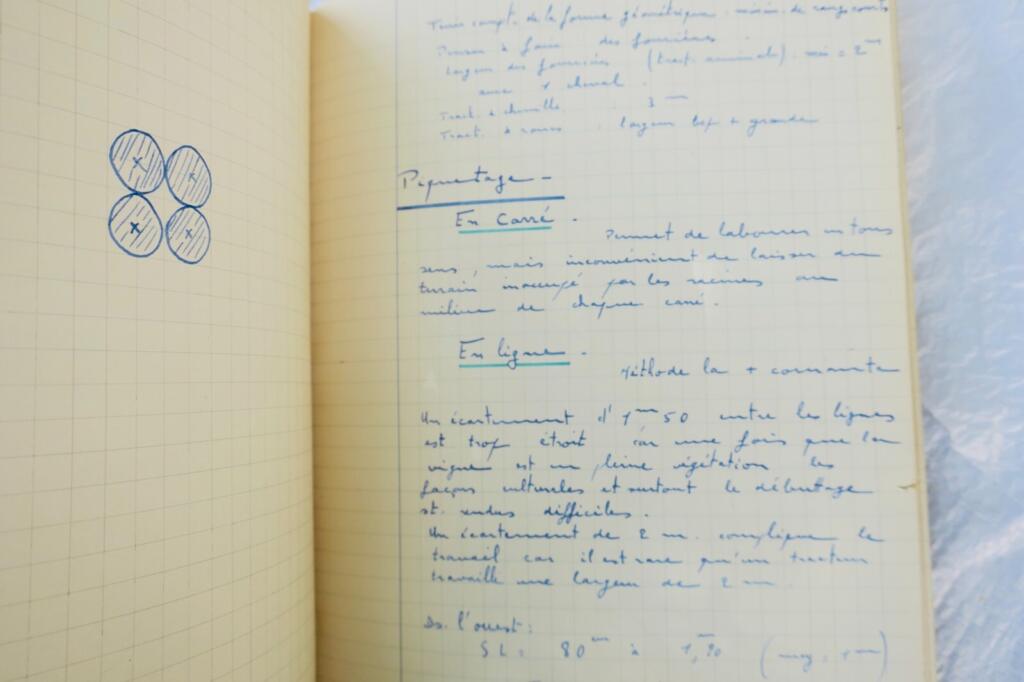 Tenir compt. de la forme géométrique. minim. de rangs courts
Penser à faire des fourrières.
Largeur des fourrières (tract. animale). mini = 2 m
avec 1 cheval.
Tract. à chenille 3 m
Tract. à roues largeur bcp + grande
Piquetage -
En Carré.
Permet de labourer en tous
sens, mais inconvénient de laisser du
terrain inoccupé par les racines au
milieu de chaque carré.
En ligne.
Méthode la + courante
Un écartement d'1 m 50 entre les lignes
est trop étroit car une fois que la
vigne est en pleine végétation les
façons culturales et surtout le débutage
st. rendus difficiles.
Un écartement de 2 m. complique le
travail car il est rare qu'un tracteur
travaille une largeur de 2 m
Ds. l'ouest :
SL = 80 cm à 1 m,20 (moy = 1 m)